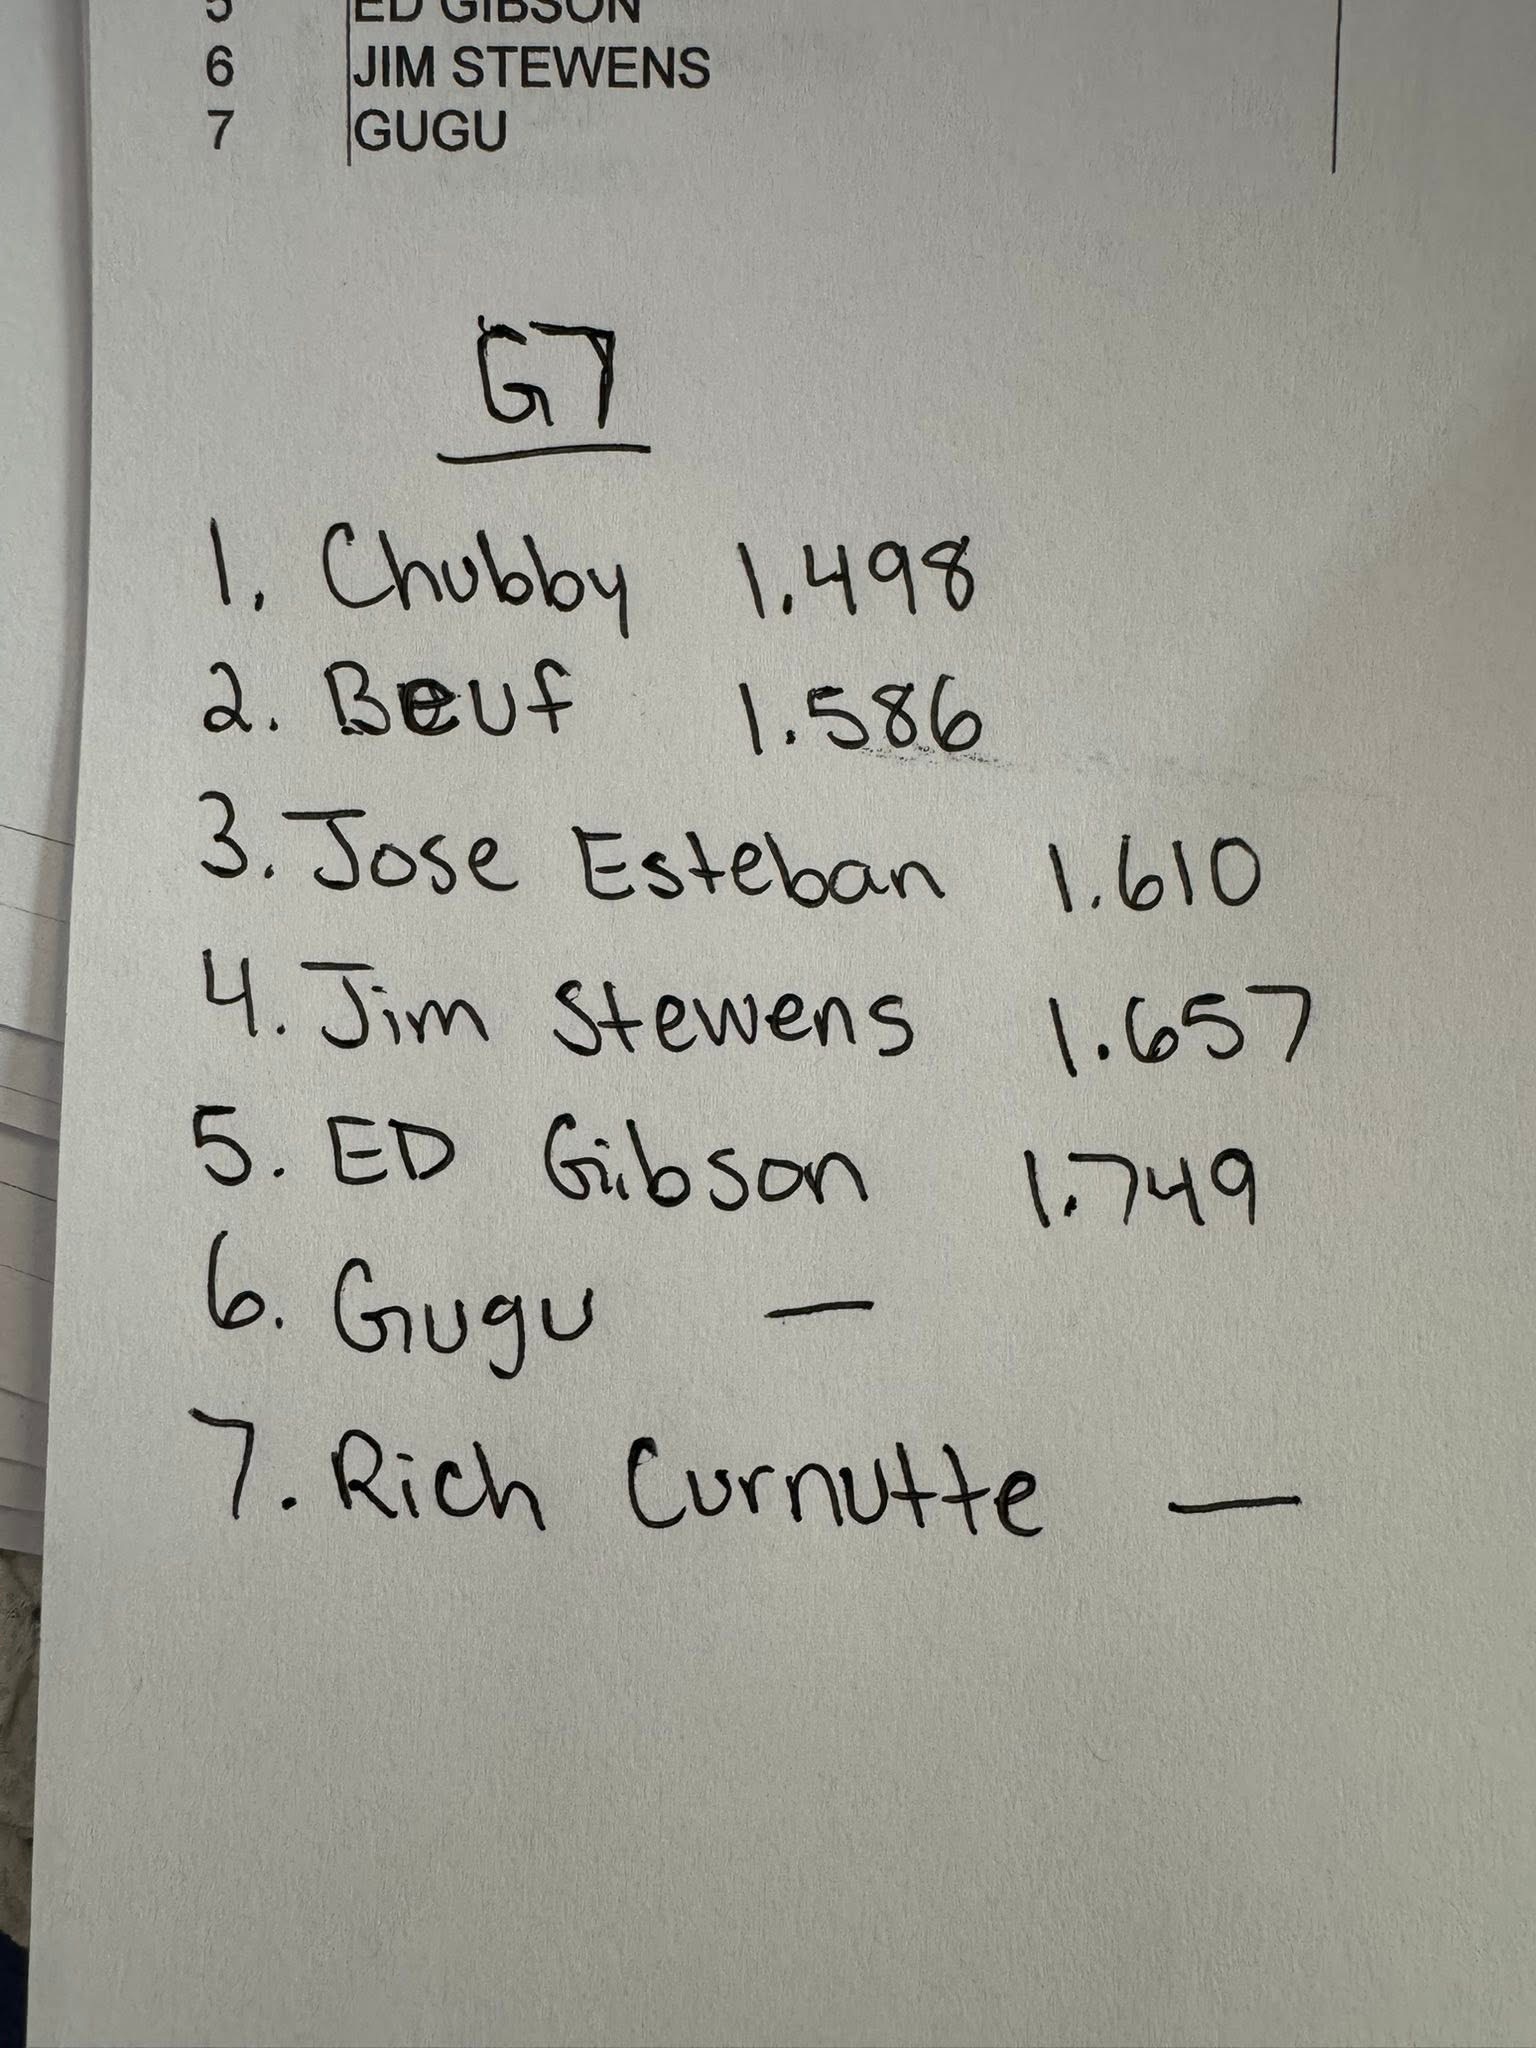 5 ED GIBSON
6 JIM STEWENS
7 GUGU
G7
1. Chubby 1.498
2. Beuf 1.586
3. Jose Esteban 1.610
4. Jim Stewens 1.657
5. ED Gibson 1.749
6. Gugu —
7. Rich Curnutte —